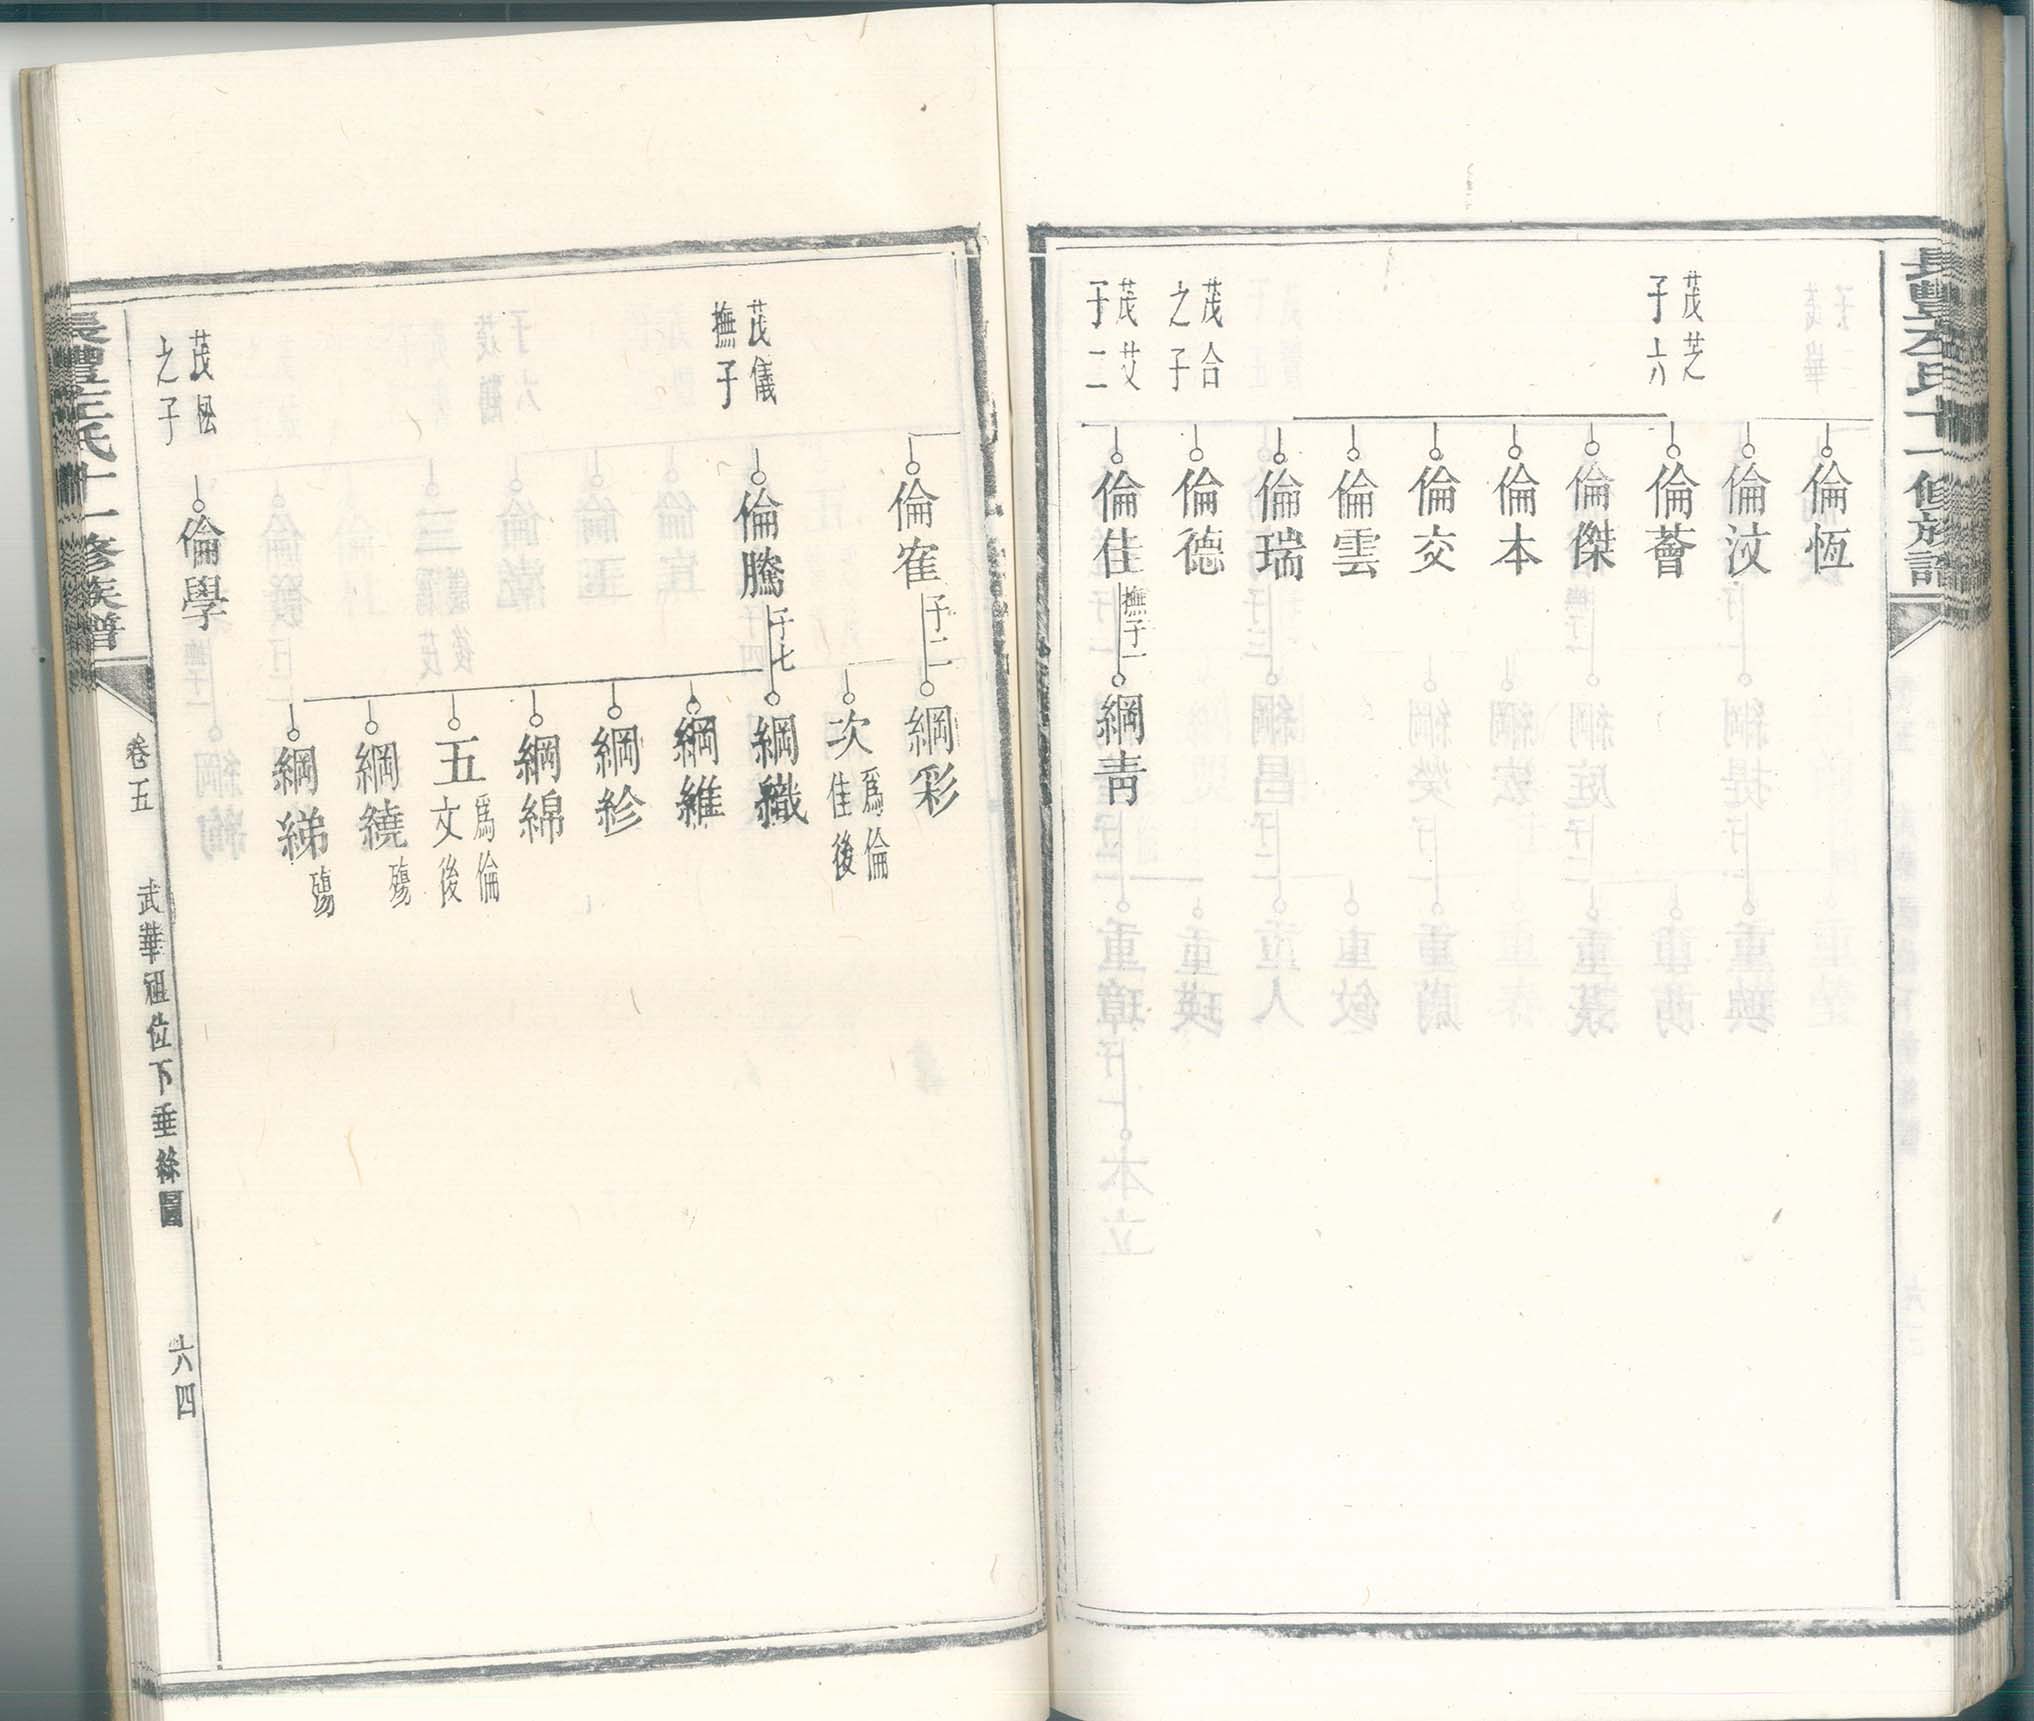 倫恆
倫汶
茂芝
子六
倫薈
倫傑
倫本
倫交
倫雲
倫瑞
茂合
之子
倫德
茂艾
子二
倫佳
撫子一
綱青
倫寉
子二
綱彩
次
爲倫
佳後
茂儀
撫子
倫騰
子七
綱織
綱維
綱紾
綱綿
五
爲倫
文後
綱繞
殤
綱綈
殤
茂松
之子
倫學
氏十一修族譜
卷五
武華祖位下垂絲圖
六四